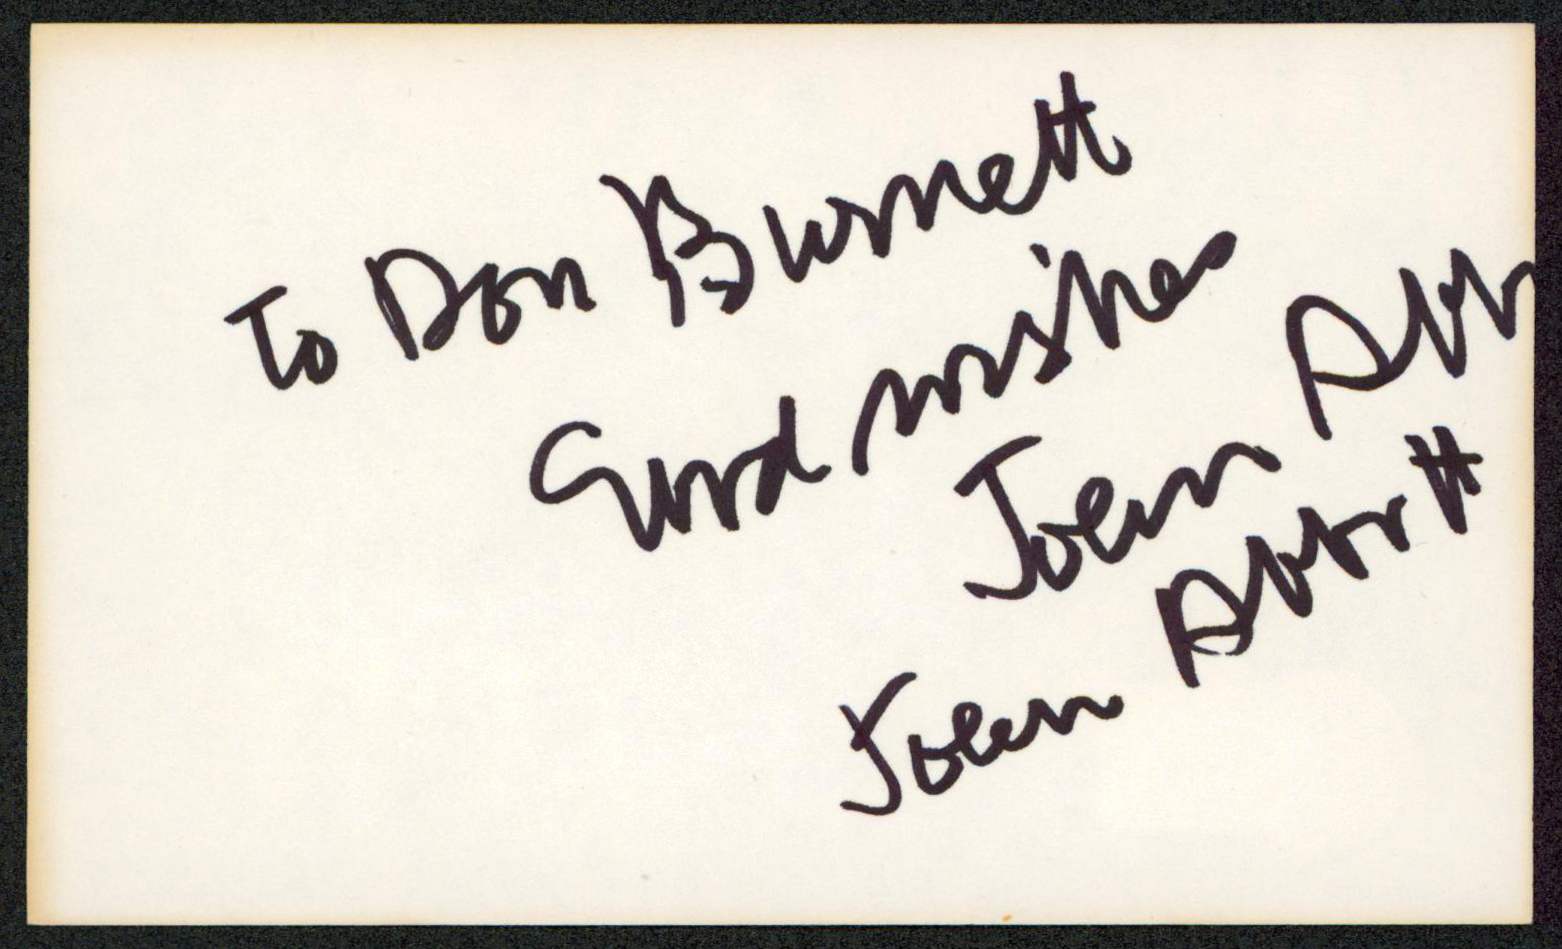 To Don Burnett
Good wishes
John Abb
John Abbott